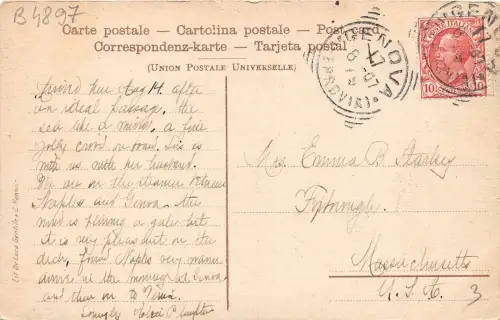 B4897
Carte postale - Cartolina postale - Post card
Correspondenz-karte - Tarjeta postal
(UNION POSTALE UNIVERSELLE)
GENOVA
(FERROVIA)
8 - 07
10
Arrived here Aug 14 after
an ideal passage, the
sea like a mirror, a fine
jolly crowd on board. Sis is
with us with her husband.
We are on the steamer between
Naples and Genoa - the
wind is blowing a gale but
it is very pleasant on the
deck, found Naples very warm
arrive at the morning at Genoa
and then on to
Lovingly
Mrs Emma B Starley
Massachusetts
U.S.A.
3